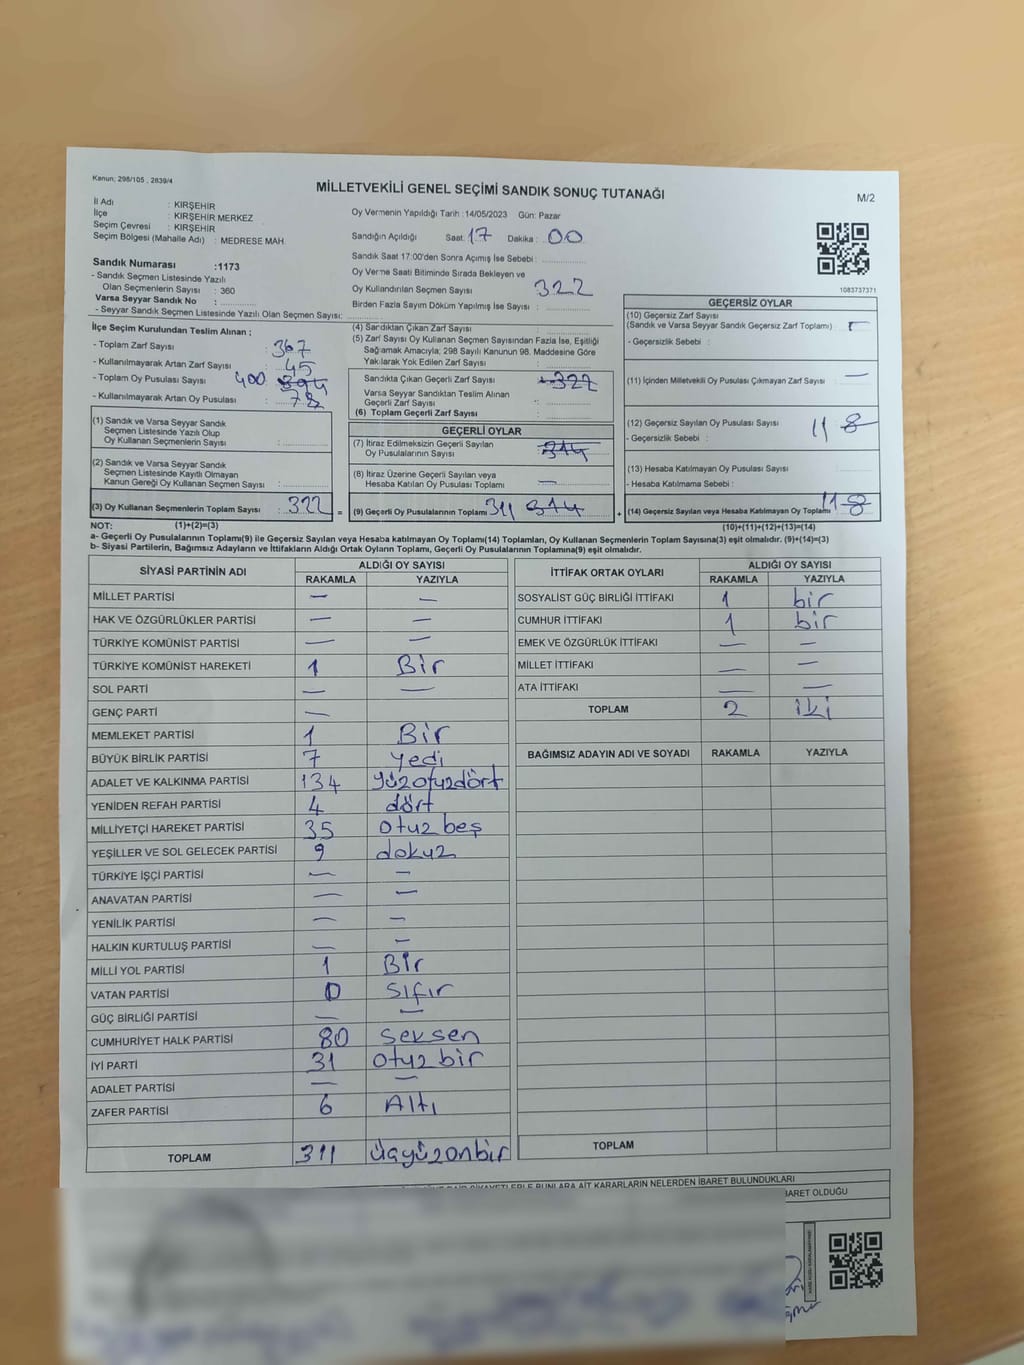 Kanun: 298/105 , 2839/4
MİLLETVEKİLİ GENEL SEÇİMİ SANDIK SONUÇ TUTANAĞI
M/2
İl Adı : KIRŞEHİR
İlçe : KIRŞEHİR MERKEZ
Seçim Çevresi : KIRŞEHİR
Seçim Bölgesi (Mahalle Adı) : MEDRESE MAH.
Sandık Numarası :1173
- Sandık Seçmen Listesinde Yazılı
Olan Seçmenlerin Sayısı : 360
Varsa Seyyar Sandık No :
- Seyyar Sandık Seçmen Listesinde Yazılı Olan Seçmen Sayısı:
Oy Vermenin Yapıldığı Tarih :14/05/2023 Gün: Pazar
Sandığın Açıldığı Saat: 17 Dakika : 00
Sandık Saat 17:00'den Sonra Açımış İse Sebebi :
Oy Verme Saati Bitiminde Sırada Bekleyen ve
Oy Kullandırılan Seçmen Sayısı : 322
Birden Fazla Sayım Döküm Yapılmış İse Sayısı :
1083737371
İlçe Seçim Kurulundan Teslim Alınan ;
- Toplam Zarf Sayısı : 367
- Kullanılmayarak Artan Zarf Sayısı : 45
- Toplam Oy Pusulası Sayısı 400 394
- Kullanılmayarak Artan Oy Pusulası : 78
(1) Sandık ve Varsa Seyyar Sandık
Seçmen Listesinde Yazılı Olup
Oy Kullanan Seçmenlerin Sayısı :
(2) Sandık ve Varsa Seyyar Sandık
Seçmen Listesinde Kayıtlı Olmayan
Kanun Gereği Oy Kullanan Seçmen Sayısı :
(3) Oy Kullanan Seçmenlerin Toplam Sayısı : 322 =
(4) Sandıktan Çıkan Zarf Sayısı :
(5) Zarf Sayısı Oy Kullanan Seçmen Sayısından Fazla İse, Eşitliği
Sağlamak Amacıyla; 298 Sayılı Kanunun 98. Maddesine Göre
Yakılarak Yok Edilen Zarf Sayısı :
Sandıkta Çıkan Geçerli Zarf Sayısı 322
Varsa Seyyar Sandıktan Teslim Alınan
Geçerli Zarf Sayısı :
(6) Toplam Geçerli Zarf Sayısı :
GEÇERLİ OYLAR
(7) İtiraz Edilmeksizin Geçerli Sayılan
Oy Pusulalarının Sayısı : 314
(8) İtiraz Üzerine Geçerli Sayılan veya
Hesaba Katılan Oy Pusulası Toplamı : —
(9) Geçerli Oy Pusulalarının Toplamı : 311 314 +
GEÇERSİZ OYLAR
(10) Geçersiz Zarf Sayısı
(Sandık ve Varsa Seyyar Sandık Geçersiz Zarf Toplamı) : —
- Geçersizlik Sebebi :
(11) İçinden Milletvekili Oy Pusulası Çıkmayan Zarf Sayısı : —
(12) Geçersiz Sayılan Oy Pusulası Sayısı : 11 8
- Geçersizlik Sebebi :
(13) Hesaba Katılmayan Oy Pusulası Sayısı :
- Hesaba Katılmama Sebebi :
(14) Geçersiz Sayılan veya Hesaba Katılmayan Oy Toplamı : 11 8
NOT: (1)+(2)=(3) (10)+(11)+(12)+(13)=(14)
a- Geçerli Oy Pusulalarının Toplamı(9) ile Geçersiz Sayılan veya Hesaba katılmayan Oy Toplamı(14) Toplamları, Oy Kullanan Seçmenlerin Toplam Sayısına(3) eşit olmalıdır. (9)+(14)=(3)
b- Siyasi Partilerin, Bağımsız Adayların ve İttifakların Aldığı Ortak Oyların Toplamı, Geçerli Oy Pusulalarının Toplamına(9) eşit olmalıdır.
SİYASİ PARTİNİN ADI ALDIĞI OY SAYISI
RAKAMLA YAZIYLA
MİLLET PARTİSİ — —
HAK VE ÖZGÜRLÜKLER PARTİSİ — —
TÜRKİYE KOMÜNİST PARTİSİ — —
TÜRKİYE KOMÜNİST HAREKETİ 1 Bir
SOL PARTİ — —
GENÇ PARTİ —
MEMLEKET PARTİSİ 1 Bir
BÜYÜK BİRLİK PARTİSİ 7 yedi
ADALET VE KALKINMA PARTİSİ 134 yüzotuzdört
YENİDEN REFAH PARTİSİ 4 dört
MİLLİYETÇİ HAREKET PARTİSİ 35 otuz beş
YEŞİLLER VE SOL GELECEK PARTİSİ 9 dokuz
TÜRKİYE İŞÇİ PARTİSİ — —
ANAVATAN PARTİSİ — —
YENİLİK PARTİSİ — —
HALKIN KURTULUŞ PARTİSİ — —
MİLLİ YOL PARTİSİ 1 Bir
VATAN PARTİSİ 0 sıfır
GÜÇ BİRLİĞİ PARTİSİ — —
CUMHURİYET HALK PARTİSİ 80 seksen
İYİ PARTİ 31 otuz bir
ADALET PARTİSİ — —
ZAFER PARTİSİ 6 Altı
TOPLAM 311 üçyüzonbir
İTTİFAK ORTAK OYLARI ALDIĞI OY SAYISI
RAKAMLA YAZIYLA
SOSYALİST GÜÇ BİRLİĞİ İTTİFAKI 1 bir
CUMHUR İTTİFAKI 1 bir
EMEK VE ÖZGÜRLÜK İTTİFAKI — —
MİLLET İTTİFAKI — —
ATA İTTİFAKI — —
TOPLAM 2 iki
BAĞIMSIZ ADAYIN ADI VE SOYADI RAKAMLA YAZIYLA
TOPLAM
BUNLARA AİT KARARLARIN NELERDEN İBARET BULUNDUKLARI
İBARET OLDUĞU